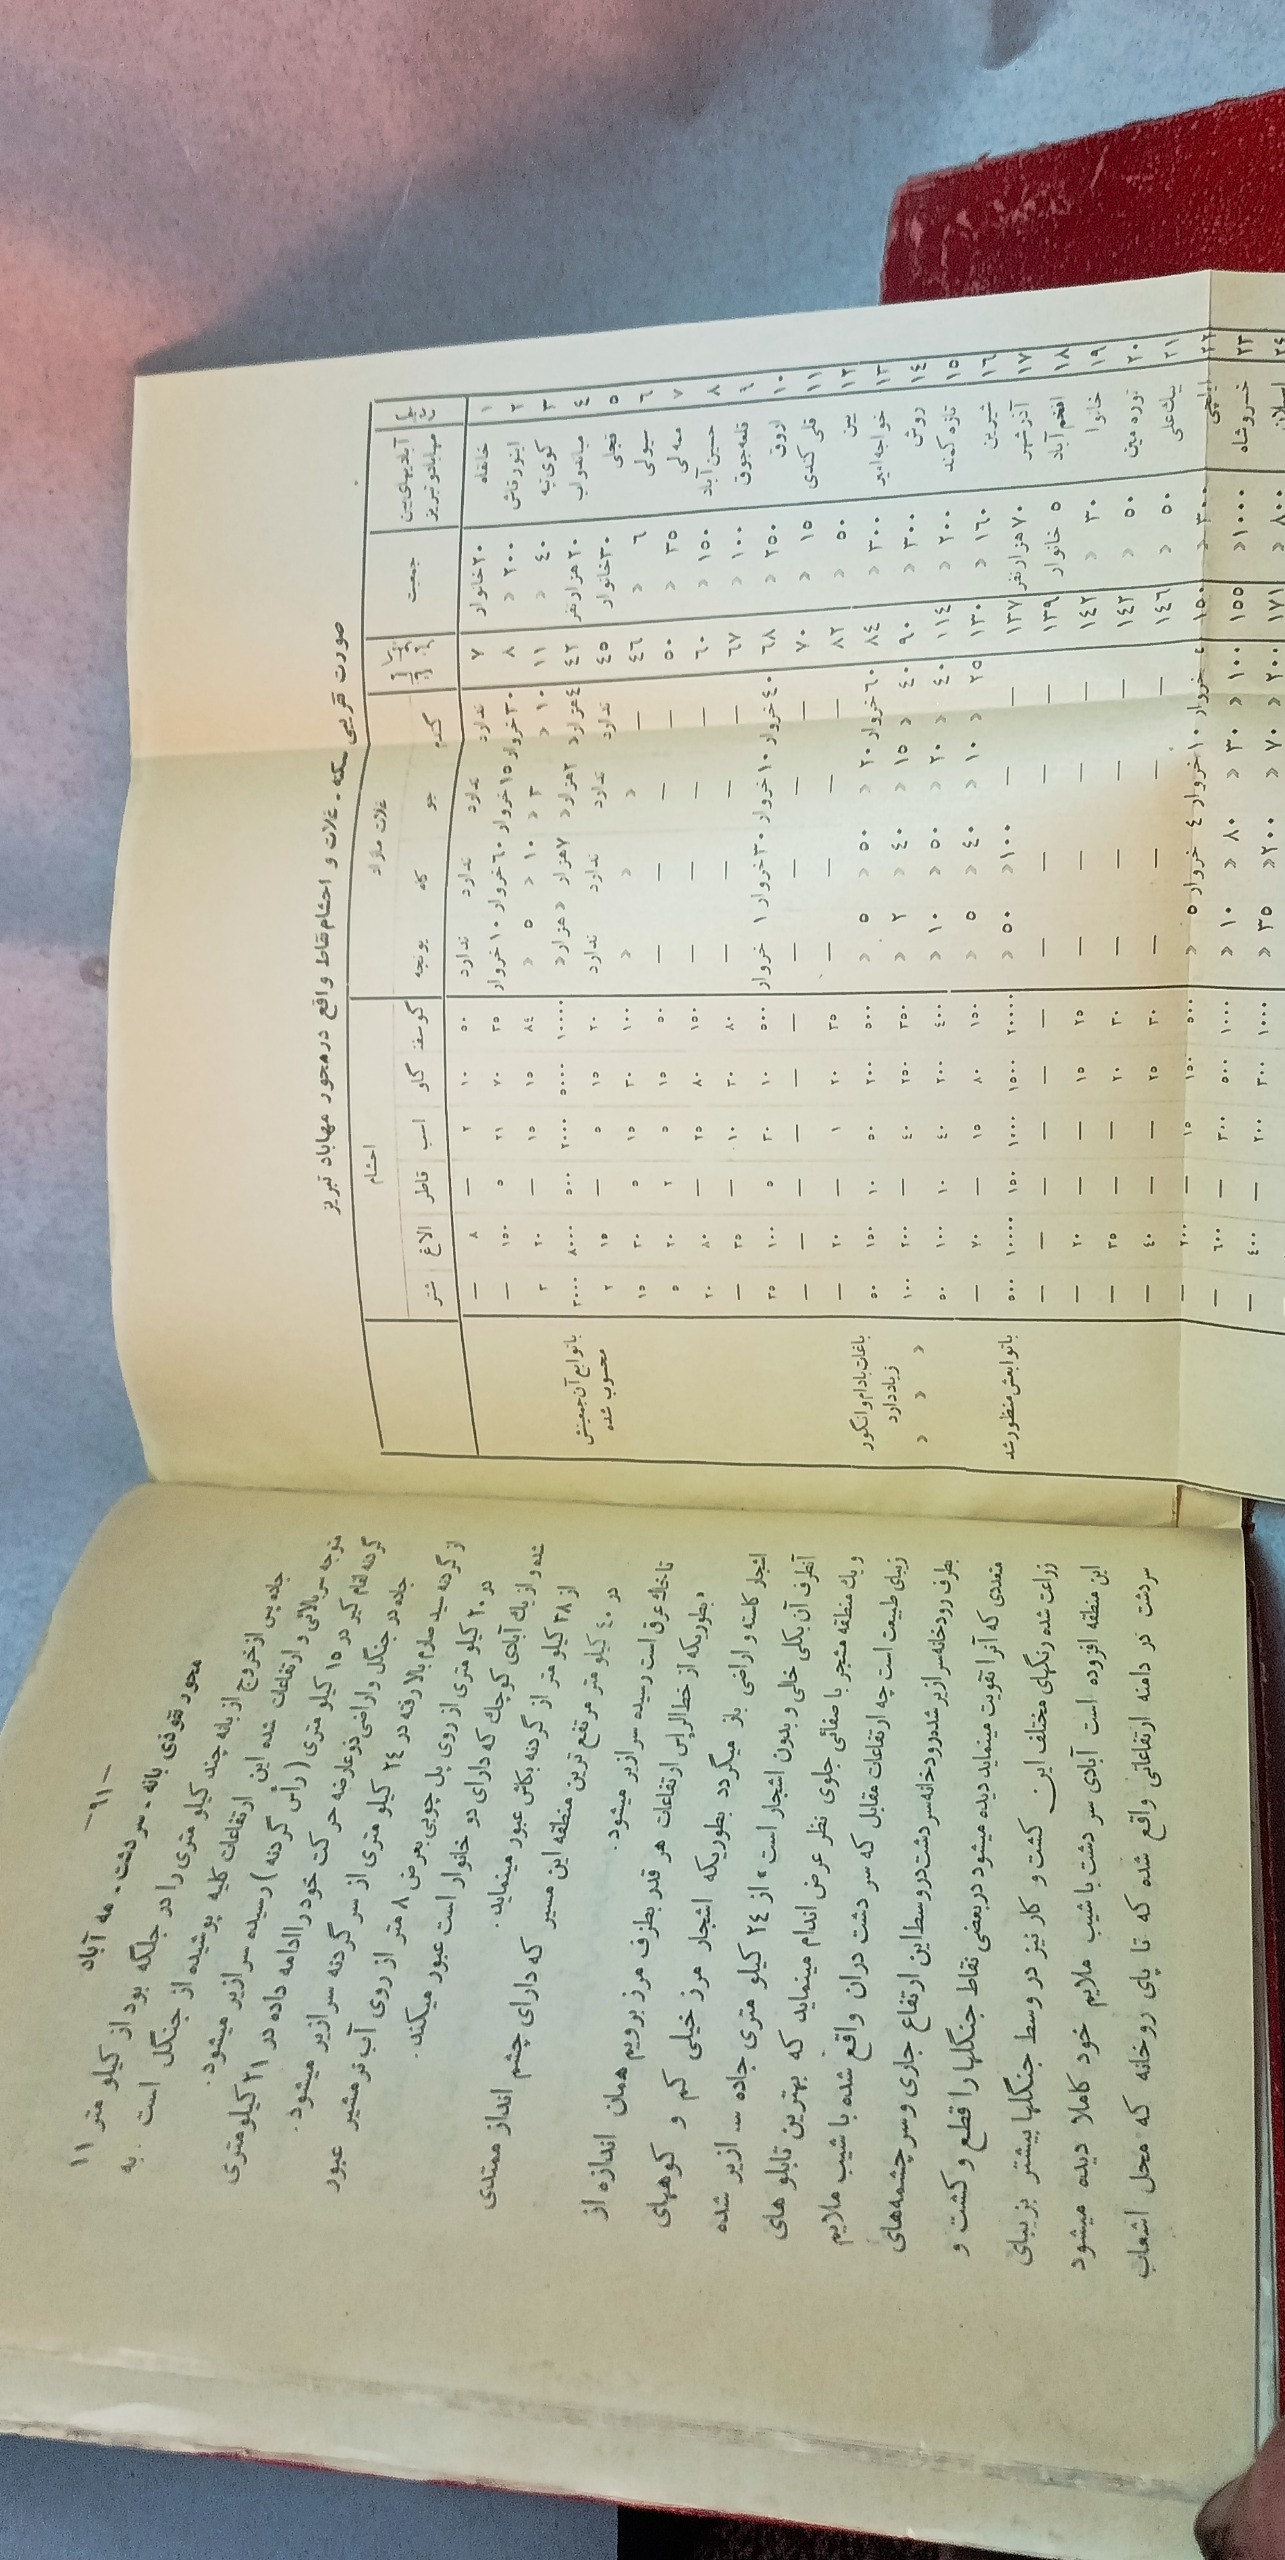 ـ۹۱ـ
محور نفوذی بانه ـ سردشت ـ مه آباد
جاده پس از خروج از بانه چند کیلو متری را در جلگه بود از کیلو متر ۱۱
متوجه سر بالائی و ارتفاعات شده این ارتفاعات کلیه پوشیده از جنگل است به
گردنه لقام کبر در ۱۵ کیلو متری (رأس گردنه) رسیده سرازیر میشود.
جاده در جنگل و اراضی دو عارضه حرکت خود را ادامه داده در ۲۱ کیلومتری
از گردنه سید صارم بالا رفته در ۲٤ کیلو متری از سر گردنه سرازیر میشود.
در ۲۰ کیلو متری از روی پل چوبی بعرض ۸ متر از روی آب عبور
شده و از یك آبادی كوچك که دارای دو خانوار است عبور میکند.
از ۳۸ کیلو متر از گردنه بکاش عبور مینماید.
در ٤۰ کیلو متر مرتفع ترین منطقه این مسیر که دارای چشم انداز ممتدی
تا خاك عرق است رسیده سرازیر میشود.
«بطوریکه از خط الرأس ارتفاعات هر قدر بطرف مرز برویم همان اندازه از
اشجار کاسته و اراضی باز میگردد بطوریکه اشجار مرز خیلی کم و کوههای
آنطرف آن بکلی خالی و بدون اشجار است» از ۲٤ کیلو متری جاده سرازیر شده
و یك منطقه مشجر با صفائی جلوی نظر عرض اندام مینماید که بهترین تابلو های
زیبای طبیعت است چه ارتفاعات مقابل که سر دشت دران واقع شده با شیب ملایم
بطرف رودخانه سرازیر شده رودخانه سردشت در وسط این ارتفاع جاری و سر چشمه های
متعددی که آنرا تقویت مینماید دیده میشود در بعضی نقاط جنگلها را قطع و کشت و
زراعت شده رنگهای مختلف این کشت و کار نیز در وسط جنگلها بیشتر بزیبای
این منطقه افزوده است آبادی سر دشت با شیب ملایم خود کاملا دیده میشود
سردشت در دامنه ارتفاعاتی واقع شده که تا پای روخانه که محل اشعاب
صورت تقریبی سکنه ـ غلات و احشام نقاط واقع در محور مهاباد تبریز
آبادیهای بین مهاباد و تبریز جمعیت غلات مازاد احشام
گندم جو کاه یونجه گوسفند گاو اسب قاطر الاغ شتر
۱ خانقاه ۲۰ خانوار ۷ ندارد ندارد ندارد ندارد ۵۰ ۱۰ ۲ — ۸ —
۲ اینورقاش ۲۰۰ » ۸ ۳۰ خروار ۱۵ خروار ٦۰ خروار ۱۰ خروار ۳۵ ۷۰ ۲۱ ۵ ۱۵۰ —
۳ کوی تپه ٤۰ » ۱۱ ۱۰ » ۳ » ۱۰ » ۵ » ۸٤ ۱۵ ۱۵ — ۲۰ ۳
٤ میاندواب ۲۰ هزار نفر ٤۲ ٤هزار» ۲هزار» ۷هزار » هزار» ۱۰۰۰۰ ۵۰۰۰ ۲۰۰۰ ۵۰۰ ۸۰۰۰ ۳۰۰۰ با توابع آن جمعیتش محسوب شده
۵ قجلی ۳۰ خانوار ٤۵ ندارد ندارد ندارد ندارد ۲۰ ۱۵ ۵ — ۱۵ ۲
٦ سیولی ٦ » ٤٦ — » » » ۱۰۰ ۳۰ ۱۵ ۵ ۳۰ ۱۵
۷ ممه لی ۳۵ » ۵۰ — — — — ۵۰ ۱۵ ۵ ۲ ۲۰ ۵
۸ حسین آباد ۱۵۰ » ٦۰ — — — — ۱۵۰ ۸۰ ۲۵ — ۸۰ ۲۰
۹ قلعه جوق ۱۰۰ » ٦۷ — — — — ۸۰ ۳۰ ۱۰ — ۳۵ —
۱۰ اروق ۲۵۰ » ٦۸ ٤۰ خروار ۱۰ خروار ۳۰ خروار ۱ خروار ۵۰۰ ۱۰ ۳۰ ۵ ۱۰۰ ۳۵
۱۱ قلی کندی ۱۵ » ۷۰ — — — — — — — — — —
۱۲ بین ۵۰ » ۸۲ — — — — ۳۵ ۲۰ ۱ — ۲۰ —
۱۳ خواجه امیر ۳۰۰ » ۸٤ ٦۰ خروار ۲۰ » ۵۰ » ۵ » ۵۰۰ ۲۰۰ ۵۰ ۱۰ ۱۵۰ ۵۰ باغات بادام و انگور زیاد دارد
۱٤ روش ۳۰۰ » ۹۰ ٤۰ » ۱۵ » ٤۰ » ۲ » ۳۵۰ ۲۵۰ ٤۰ — ۲۰۰ ۱۰۰ » » »
۱۵ تازه کند ۲۰۰ » ۱۱٤ ٤۰ » ۲۰ » ۵۰ » ۱۰ » ٤۰۰ ۲۰۰ ٤۰ ۱۰ ۱۰۰ ۵۰
۱٦ شیرین ۱٦۰ » ۱۳۰ ۲۵ » ۱۰ » ٤۰ » ۵ » ۱۵۰ ۸۰ ۱۵ — ۷۰ —
۱۷ آذر شهر ۷۰ هزار نفر ۱۳۷ — — ۱۰۰» ۵۰ » ۲۰۰۰۰ ۱۵۰۰ ۱۰۰۰ ۱۵۰ ۱۰۰۰۰ ۵۰۰ با توابعش منظور شد
۱۸ افخم آباد ۵ خانوار ۱۳۹ — — — — — — — — — —
۱۹ خانوا ۳۰ » ۱٤۲ — — — — ۲۵ ۱۵ — — ۲۰ —
۲۰ توره مین ۵۰ » ۱٤۲ — — — — ۳۰ ۲۰ — — ۳۵ —
۲۱ بیك علی ۵۰ » ۱٤٦ — — — — ۳۰ ۲۵ — — ٤۰ —
۲۲ ایلخچی ۳۰۰ » ۱۵۰ خروار ۱۰ خروار ٤ خروار ۵ » ۵۰۰ ۱۵۰ ۱۵ — ۲۰۰ —
۲۳ خسروشاه ۱۰۰۰» ۱۵۵ ۱۰۰ » ۳۰ » ۸۰ » ۱۰ » ۱۰۰۰ ۵۰۰ ۳۰۰ — ٦۰۰ —
۲٤ ۸۰۰ » ۱۷۱ ۲۰۰ » ۷۰ » ۲۰۰» ۳۵ » ۱۰۰۰ ۳۰۰ ۲۰۰ — ٤۰۰ —